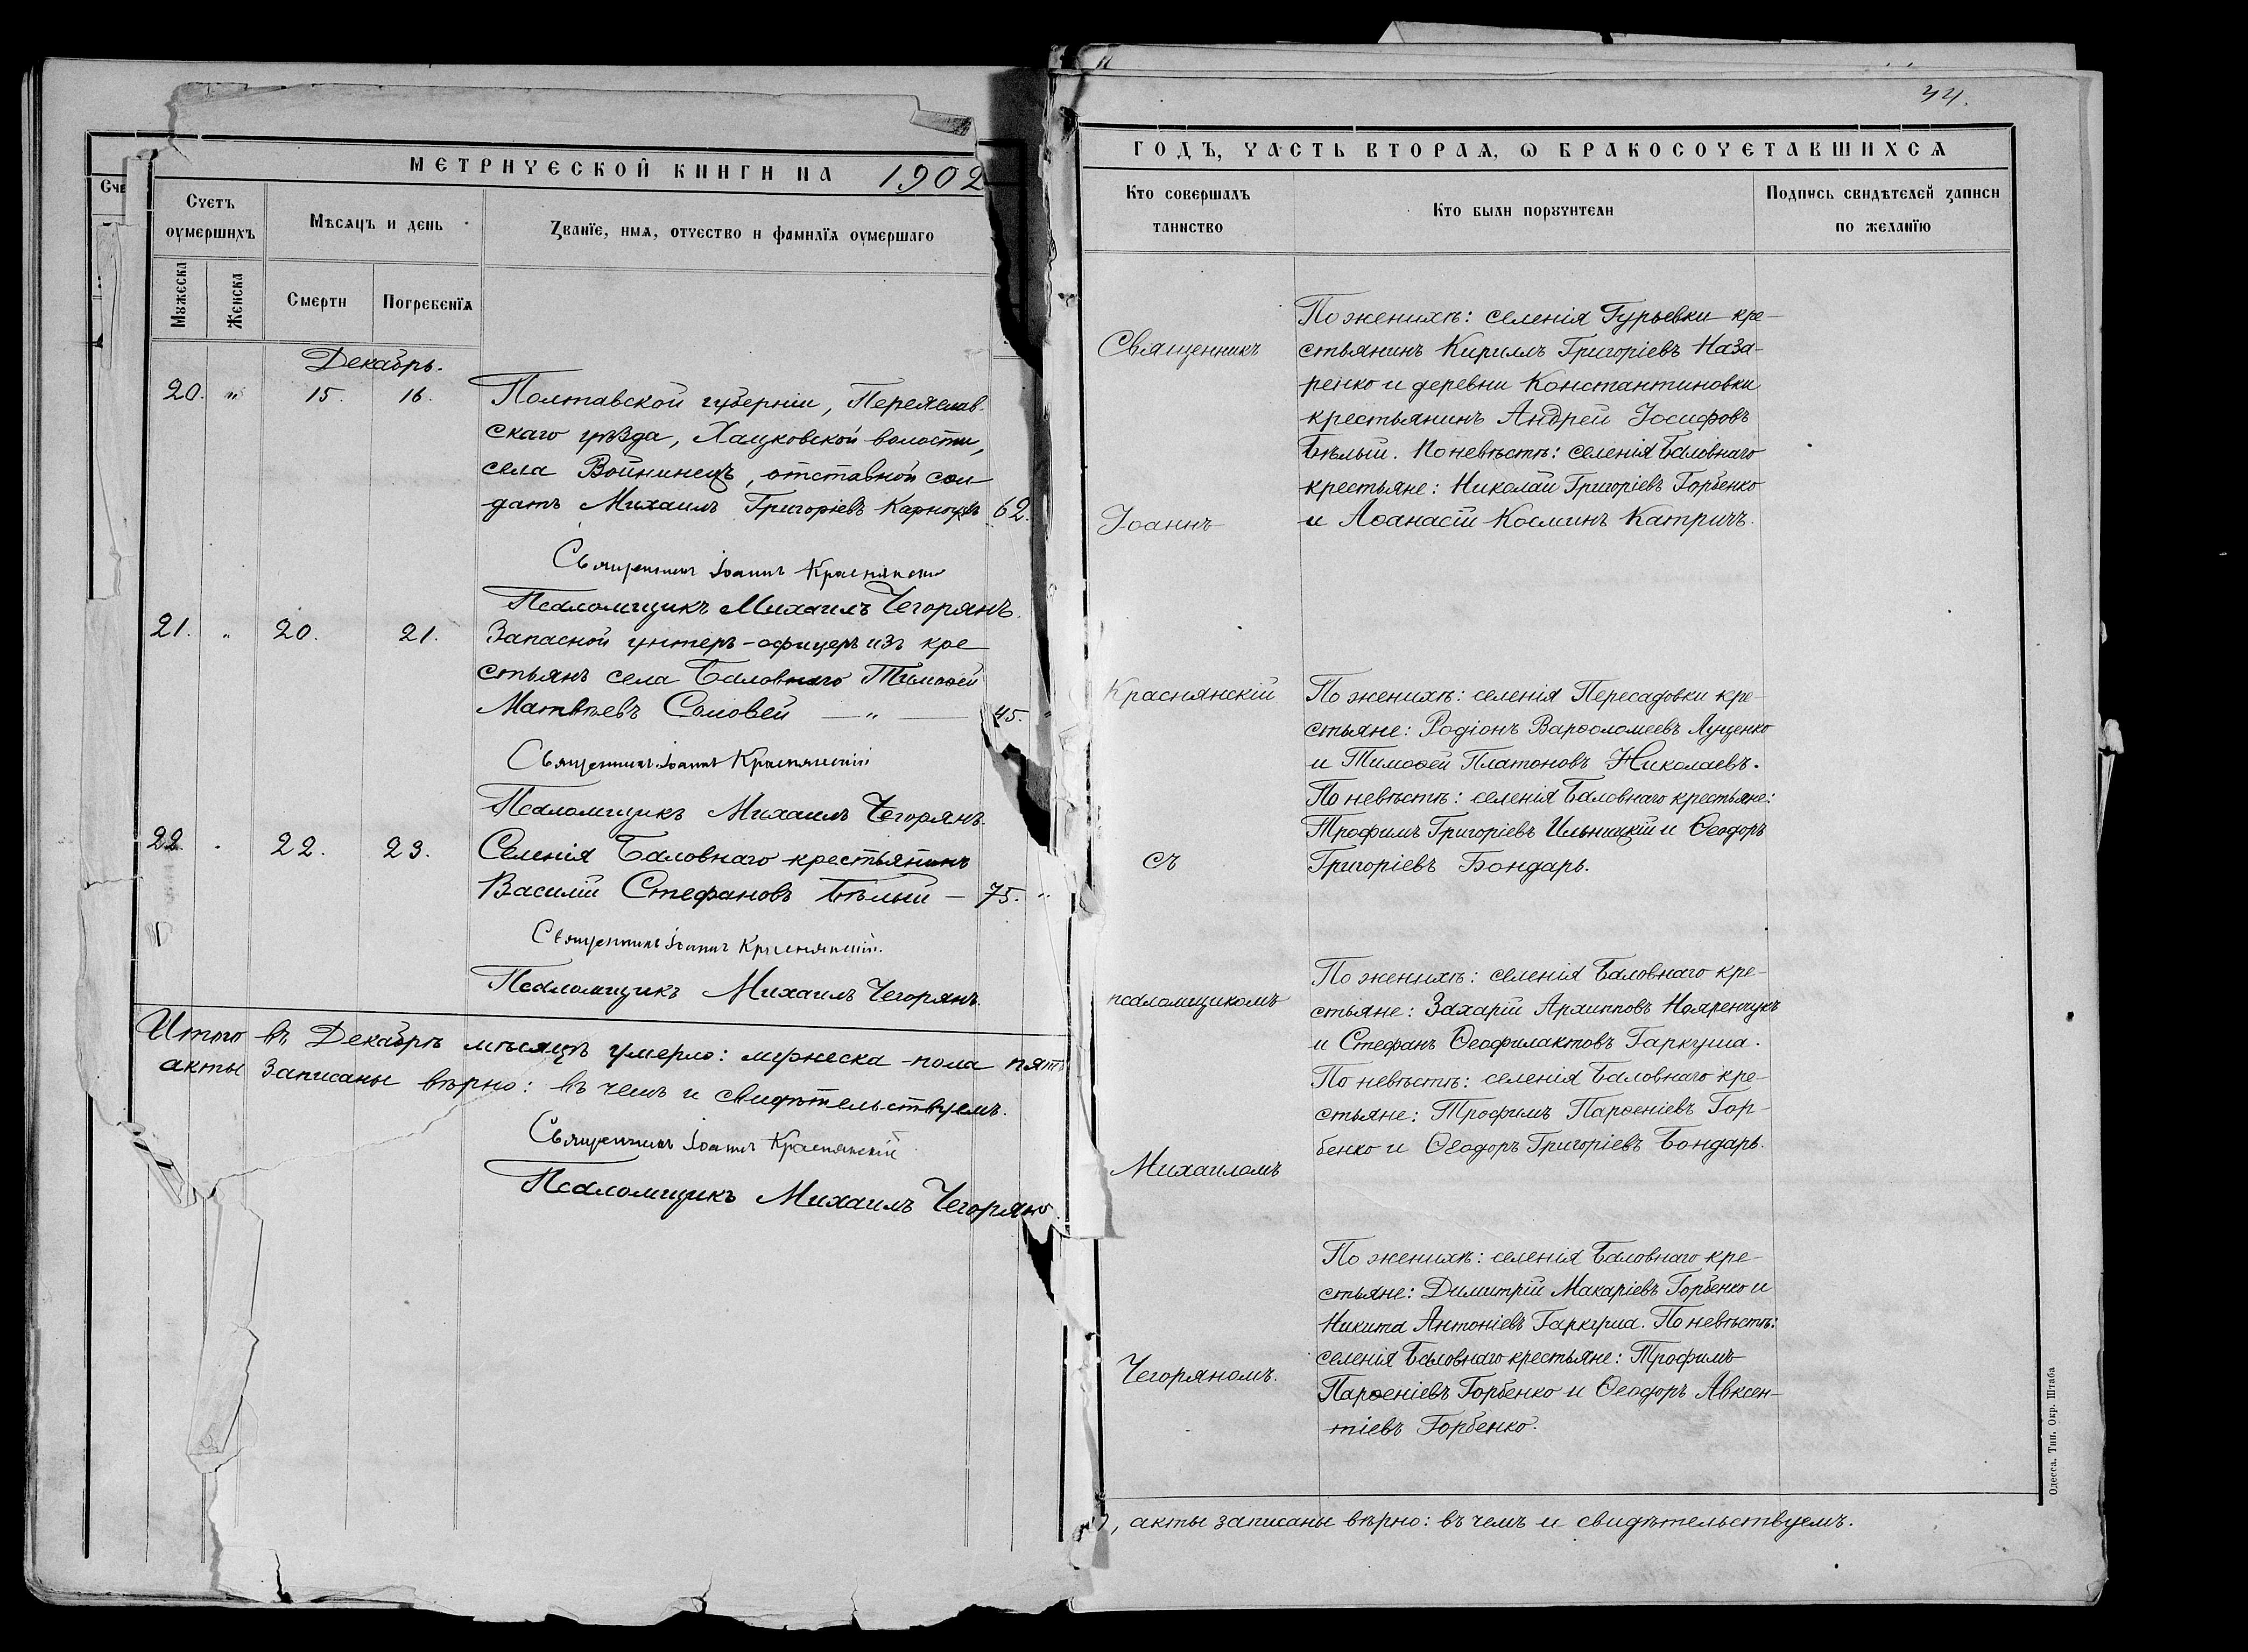 МЕТРИЧЕСКОЙ КНИГИ НА 1902
Счетъ оумершихъ
Мѣсяцъ и день
Званїе, имѧ, отчество и фамилїѧ оумершаго
Мꙋжеска
Женска
Смерти
Погребенїѧ
Декабрь.
20. " 15. 16. Полтавской губерніи, Переяслав-
скаго уѣзда, Хацковской волости,
села Войнинецъ, отставной сол
датъ Михаилъ Григоріевъ 62.
Священникъ Іоаннъ Краснянскій
Псаломщикъ Михаилъ Чегорянъ.
21. " 20. 21. Запасной унтеръ-офицеръ изъ кре
стьянъ села Баловнаго Тимоѳей
Матвѣевъ Соловей — " — 45.
Священникъ Іоаннъ Краснянскій
Псаломщикъ Михаилъ Чегорянъ.
22. " 22. 23. Селенія Баловнаго крестьянинъ
Василій Стефановъ Бѣлый — 75. "
Священникъ Іоаннъ Краснянскій.
Псаломщикъ Михаилъ Чегорянъ.
Итого въ Декабрѣ мѣсяцѣ умерло: мужеска пола пять
акты записаны вѣрно: въ чемъ и свидѣтельствуемъ.
Священникъ Іоаннъ Краснянскій
Псаломщикъ Михаилъ Чегорянъ.
34.
ГОДЪ, ЧАСТЬ ВТОРАѦ, Ѡ БРАКОСОЧЕТАВШИХСѦ
Кто совершалъ
таинство
Кто были порꙋчители
Подпись свидѣтелей записи
по желанїю
По женихѣ: селенія Гурьевки кре-
Священникъ
стьянинъ Кириллъ Григоріевъ Наза-
ренко и деревни Константиновки
крестьянинъ Андрей Іосифовъ
Бѣлый. По невѣстѣ: селенія Баловнаго
крестьяне: Николай Григоріевъ Горбенко
Іоаннъ
и Аѳанасій Косминъ Катричъ.
Краснянскій
По женихѣ: селенія Пересадовки кре-
стьяне: Родіонъ Варѳоломеевъ Луценко
и Тимоѳей Платоновъ Николаевъ.
По невѣстѣ: селенія Баловнаго крестьяне:
Трофимъ Григоріевъ Ильницкій и Ѳеодоръ
съ
Григоріевъ Бондарь.
По женихѣ: селенія Баловнаго кре-
псаломщикомъ
стьяне: Захарій Архипповъ
и Стефанъ Ѳеофилактовъ Гаркуша.
По невѣстѣ: селенія Баловнаго кре-
стьяне: Трофимъ Парѳеніевъ Гор-
бенко и Ѳеодоръ Григоріевъ Бондарь.
Михаиломъ
По женихѣ: селенія Баловнаго кре-
стьяне: Димитрій Макаріевъ Горбенко и
Никита Антоніевъ Гаркуша. По невѣстѣ:
селенія Баловнаго крестьяне: Трофимъ
Чегоряномъ.
Парѳеніевъ Горбенко и Ѳеодоръ Авксен-
тіевъ Горбенко.
, акты записаны вѣрно: въ чемъ и свидѣтельствуемъ.
Одесса. Тип. Окр. Штаба